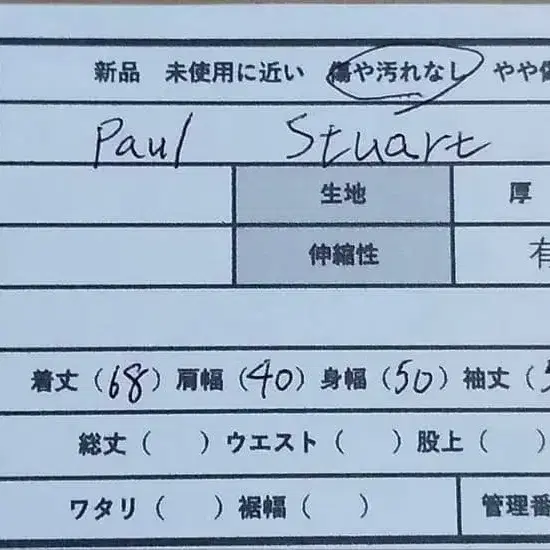 新品 未使用に近い 傷や汚れなし やや傷
Paul Stuart
生地 厚
伸縮性 有
着丈 (68) 肩幅 (40) 身幅 (50) 袖丈 (5
総丈 ( ) ウエスト ( ) 股上 ( )
ワタリ ( ) 裾幅 ( ) 管理番